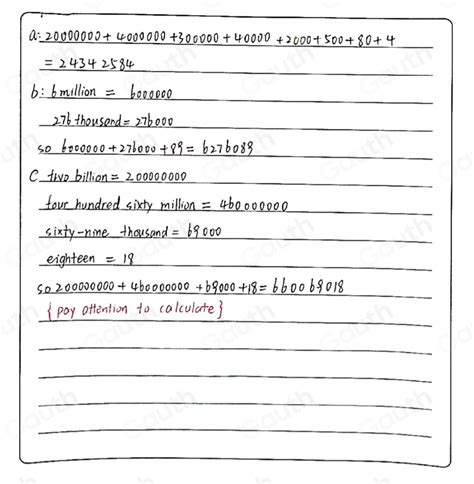 a: 20000000 + 4000000 + 300000 + 40000 + 2000 + 500 + 80 + 4
= 24342584
b: 6 million = 6000000
276 thousand = 276000
so 6000000 + 276000 + 89 = 6276089
C two billion = 200000000
four hundred sixty million = 460000000
sixty-nine thousand = 69000
eighteen = 18
so 200000000 + 460000000 + 69000 + 18 = 660069018
{ pay attention to calculate }